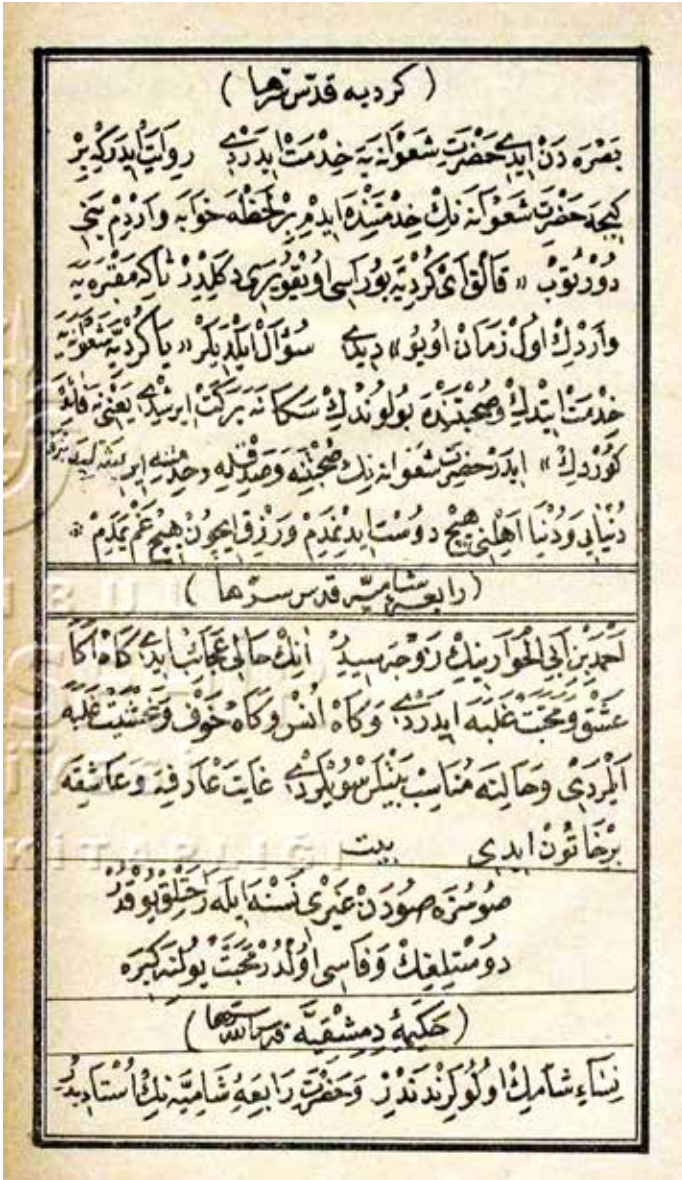 ( كرديه قدّس سرّها )
بَصْرَه دَنْ ايدى حَضْرَتِ شَعْوَانَه يَه خِدْمَتْ ايدَرْدى رِوايَتْ ايدَركِه بِرْ
كيجه حَضْرَتِ شَعْوَانَه نِكْ خِدْمَتِنْدَه ايدِمْ بِرْ لَحْظَه خوابَه وارْدِمْ بَنى
دُورْتُوبْ «قالْق اَىْ كُرْدِيَّه بُوراسى اُويْقُو يِرى دكلدر تاكِه مَقْبَرَه يَه
وارْدِكْ اول زمان اويو» ديدى سُؤَالْ ايلَديلَرْ «يا كُرْدِيَّه شَعْوانَه يَه
خِدْمَتْ ايتْدِكْ وصُحْبَتِنْدَه بولوندكْ سَكا نَه بَرَكَتْ ايرشدى يعنى نه فائده
كُورْدِكْ» ايدر حضرت شعوانه نك صحبتنه وصدقله خدمتنه
دُنْيايى وَدُنْيا اَهْلِنى هيچْ دوسْت ايدِنْمَدِمْ ورِزْق ايچون هيچْ غَمْ يِمَدِمْ *
( رابعۀ شاميه قدس سرّها )
اَحْمَد بِنْ اَبى الْحَوارينِكْ زَوْجَه سيدر انِكْ حالى عَجائِبْ ايدى كاه اَكا
عِشْق ومَحَبَّتْ غَلَبَه ايدَرْدى وَكاه اُنْس وكاه خَوْف وخَشْيَتْ غَلَبَه
ايلَرْدى وحالِنَه مُناسِبْ بَيْتْلَر سُويْلَرْدى غايَتْ عارفه وعاشقه
بِرْ خاتُونْ ايدى بيت
صُوسُزَه صُودَنْ غَيْرى نَسْنَه ايلَه راحَتْلِقْ يوقْدُرْ
دوسْتْلِغِكْ وَفاسى اولْدُرْ مَحَبَّتْ يولنه كيره
( حَكيمۀ دِمِشْقِيَّه قدس الله سرها )
نِساءِ شامِكْ اولولَرِنْدَنْدِرْ وحَضْرَتِ رابِعَۀ شامِيَّه نِكْ اُسْتاديدُرْ